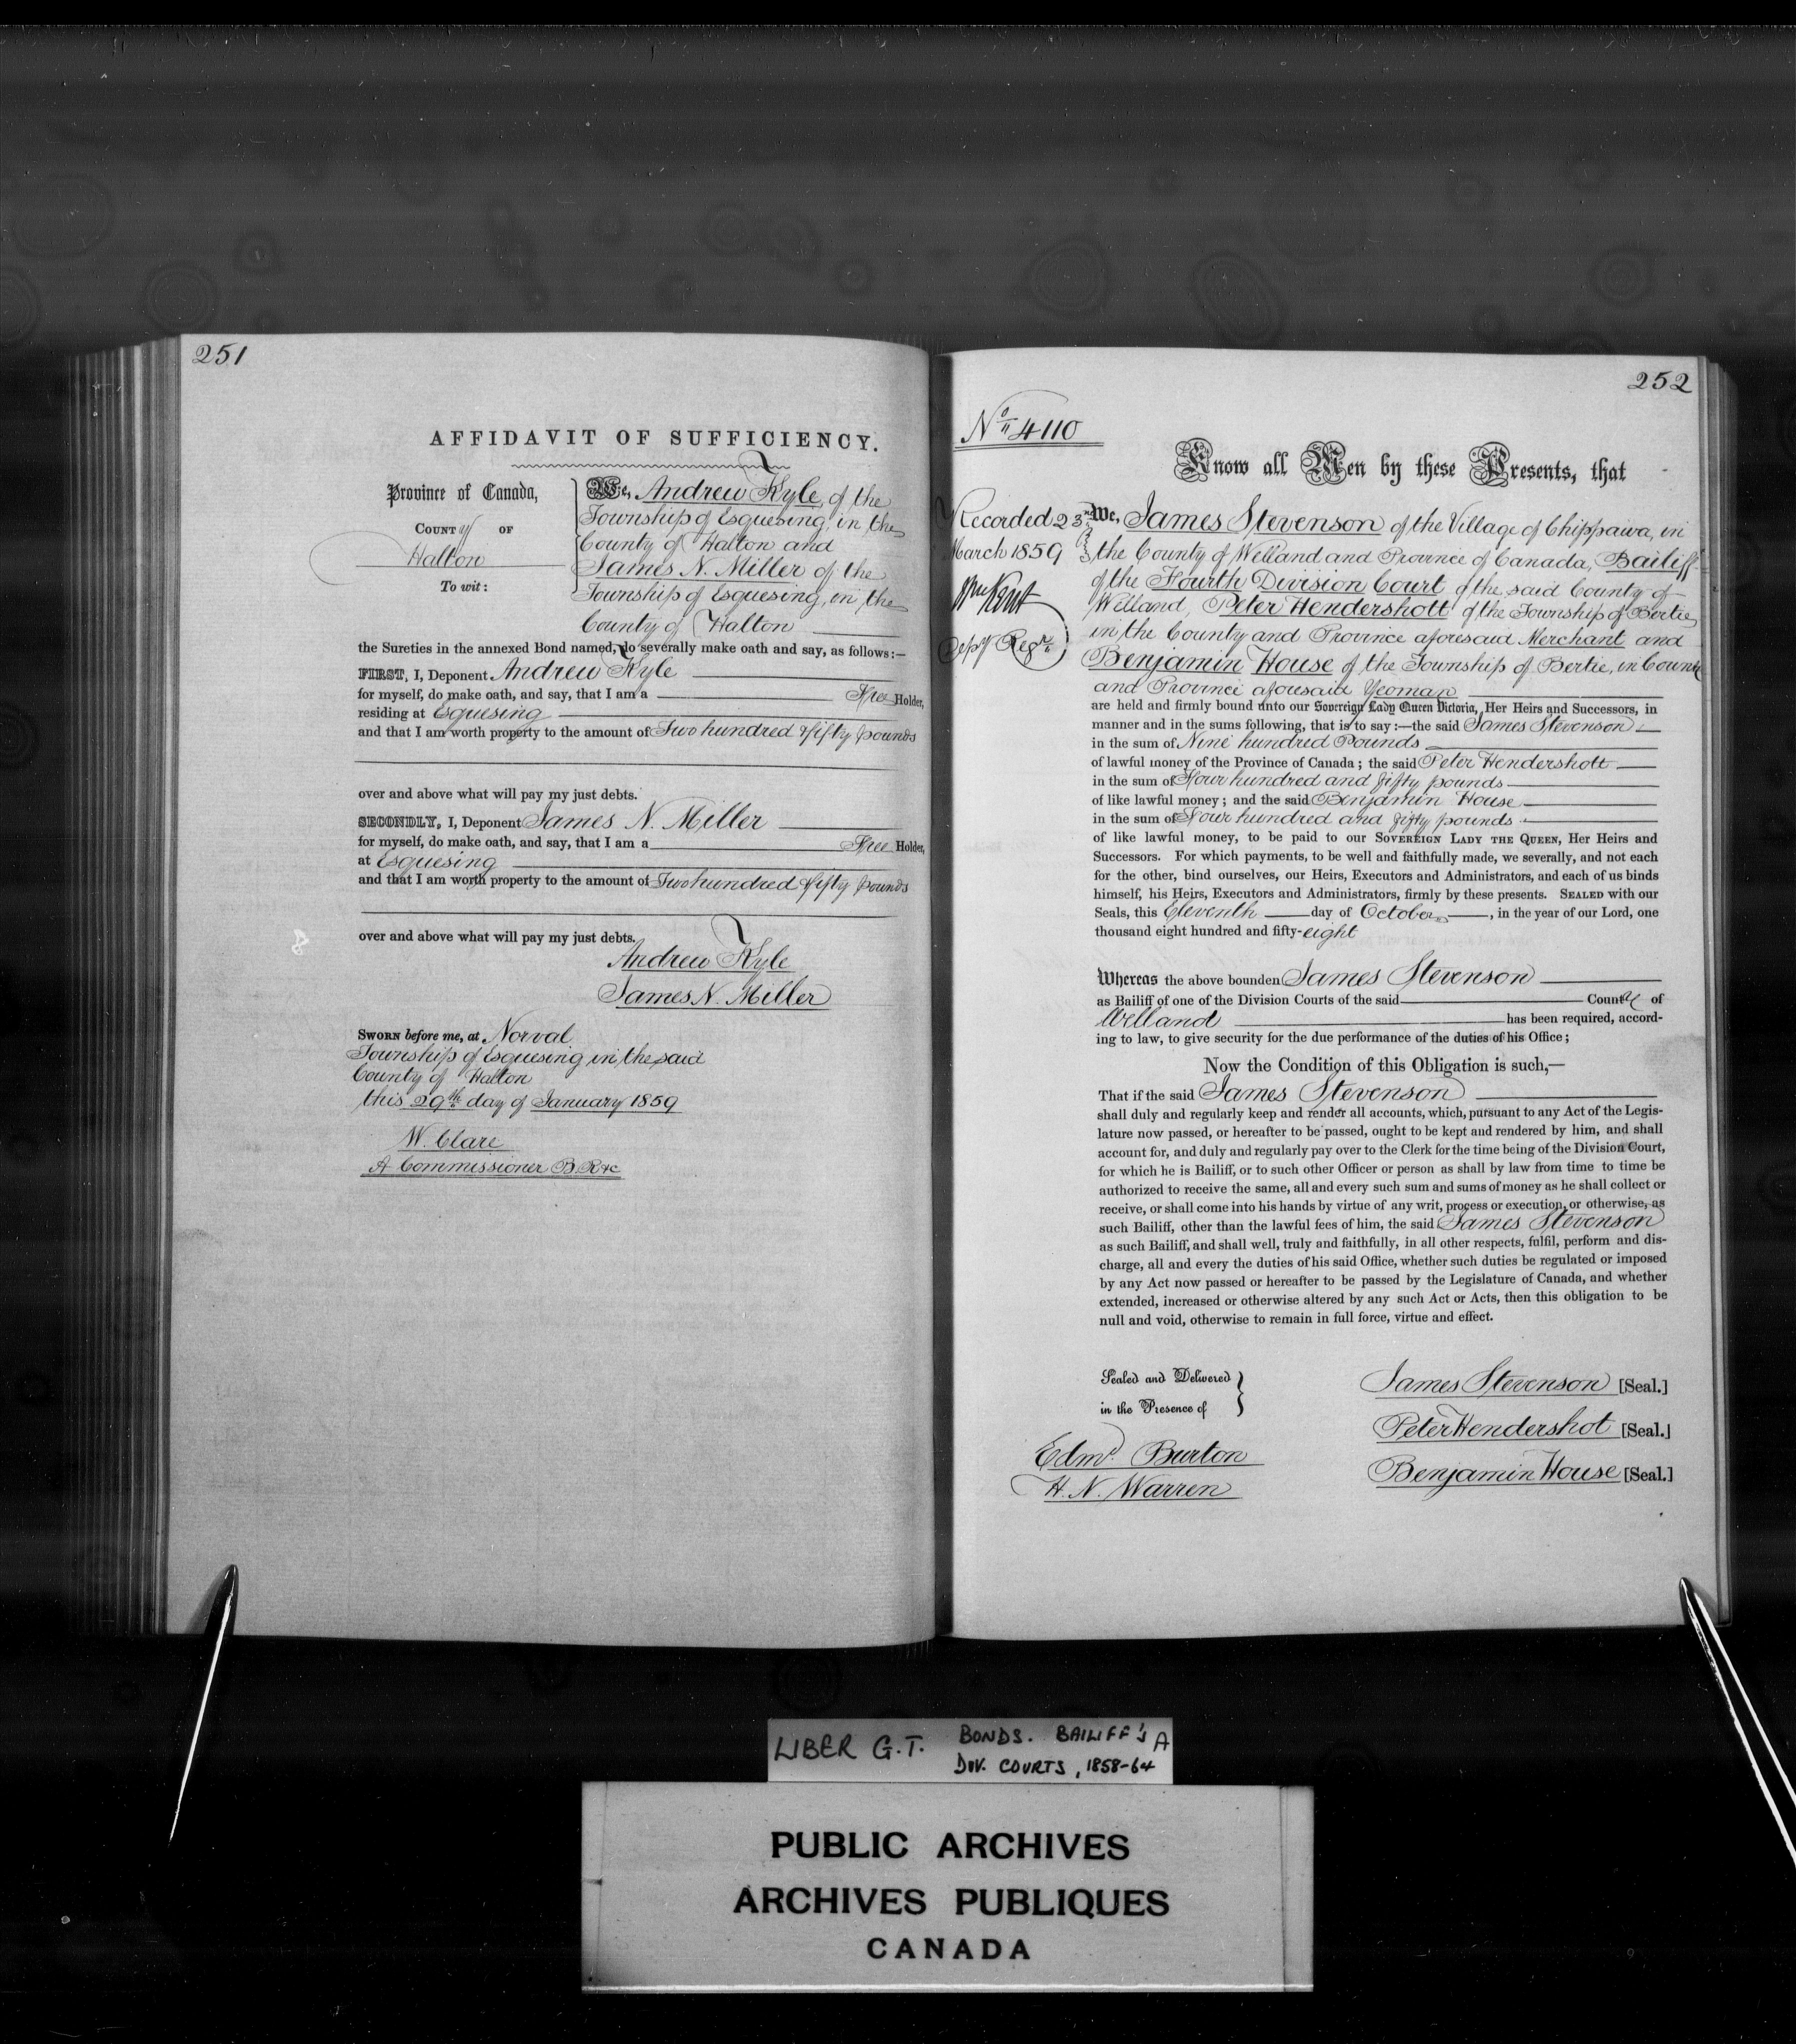 251
AFFIDAVIT OF SUFFICIENCY.
Province of Canada,
COUNTY OF
Halton
To wit:
We, Andrew Kyle, of the
Township of Esquesing, in the
County of Halton and
James N. Miller of the
Township of Esquesing, in the
County of Halton
the Sureties in the annexed Bond named, do severally make oath and say, as follows:—
FIRST, I, Deponent Andrew Kyle
for myself, do make oath, and say, that I am a Free Holder,
residing at Esquesing
and that I am worth property to the amount of Two hundred & fifty pounds
over and above what will pay my just debts.
SECONDLY, I, Deponent James N. Miller
for myself, do make oath, and say, that I am a Free Holder,
at Esquesing
and that I am worth property to the amount of Two hundred & fifty pounds
over and above what will pay my just debts.
Andrew Kyle
James N. Miller
SWORN before me, at Norval
Township of Esquesing in the said
County of Halton
this 29th day of January 1859
W. Clare
A Commissioner B.R &c
8
252
No 4110
Recorded 23rd
March 1859
Wm Kent
Depy Regr.
Know all Men by these Presents, that
We, James Stevenson of the Village of Chippawa, in
the County of Welland and Province of Canada, Bailiff
of the Fourth Division Court of the said County of
Welland, Peter Hendershott of the Township of Bertie
in the County and Province aforesaid Merchant and
Benjamin House of the Township of Bertie, in County
and Province aforesaid Yeoman
are held and firmly bound unto our Sovereign Lady Queen Victoria, Her Heirs and Successors, in
manner and in the sums following, that is to say:—the said James Stevenson
in the sum of Nine hundred Pounds
of lawful money of the Province of Canada; the said Peter Hendershott
in the sum of Four hundred and fifty pounds
of like lawful money; and the said Benjamin House
in the sum of Four hundred and fifty pounds
of like lawful money, to be paid to our SOVEREIGN LADY THE QUEEN, Her Heirs and
Successors. For which payments, to be well and faithfully made, we severally, and not each
for the other, bind ourselves, our Heirs, Executors and Administrators, and each of us binds
himself, his Heirs, Executors and Administrators, firmly by these presents. SEALED with our
Seals, this Eleventh day of October, in the year of our Lord, one
thousand eight hundred and fifty-eight
Whereas the above bounden James Stevenson
as Bailiff of one of the Division Courts of the said County of
Welland has been required, accord-
ing to law, to give security for the due performance of the duties of his Office;
Now the Condition of this Obligation is such,—
That if the said James Stevenson
shall duly and regularly keep and render all accounts, which, pursuant to any Act of the Legis-
lature now passed, or hereafter to be passed, ought to be kept and rendered by him, and shall
account for, and duly and regularly pay over to the Clerk for the time being of the Division Court,
for which he is Bailiff, or to such other Officer or person as shall by law from time to time be
authorized to receive the same, all and every such sum and sums of money as he shall collect or
receive, or shall come into his hands by virtue of any writ, process or execution, or otherwise, as
such Bailiff, other than the lawful fees of him, the said James Stevenson
as such Bailiff, and shall well, truly and faithfully, in all other respects, fulfil, perform and dis-
charge, all and every the duties of his said Office, whether such duties be regulated or imposed
by any Act now passed or hereafter to be passed by the Legislature of Canada, and whether
extended, increased or otherwise altered by any such Act or Acts, then this obligation to be
null and void, otherwise to remain in full force, virtue and effect.
Sealed and Delivered
in the Presence of
Edmd. Burton
H. N. Warren
James Stevenson [Seal.]
Peter Hendershot [Seal.]
Benjamin House [Seal.]
LIBER G.T. BONDS. BAILIFF'S A
DIV. COURTS, 1858-64
PUBLIC ARCHIVES
ARCHIVES PUBLIQUES
CANADA